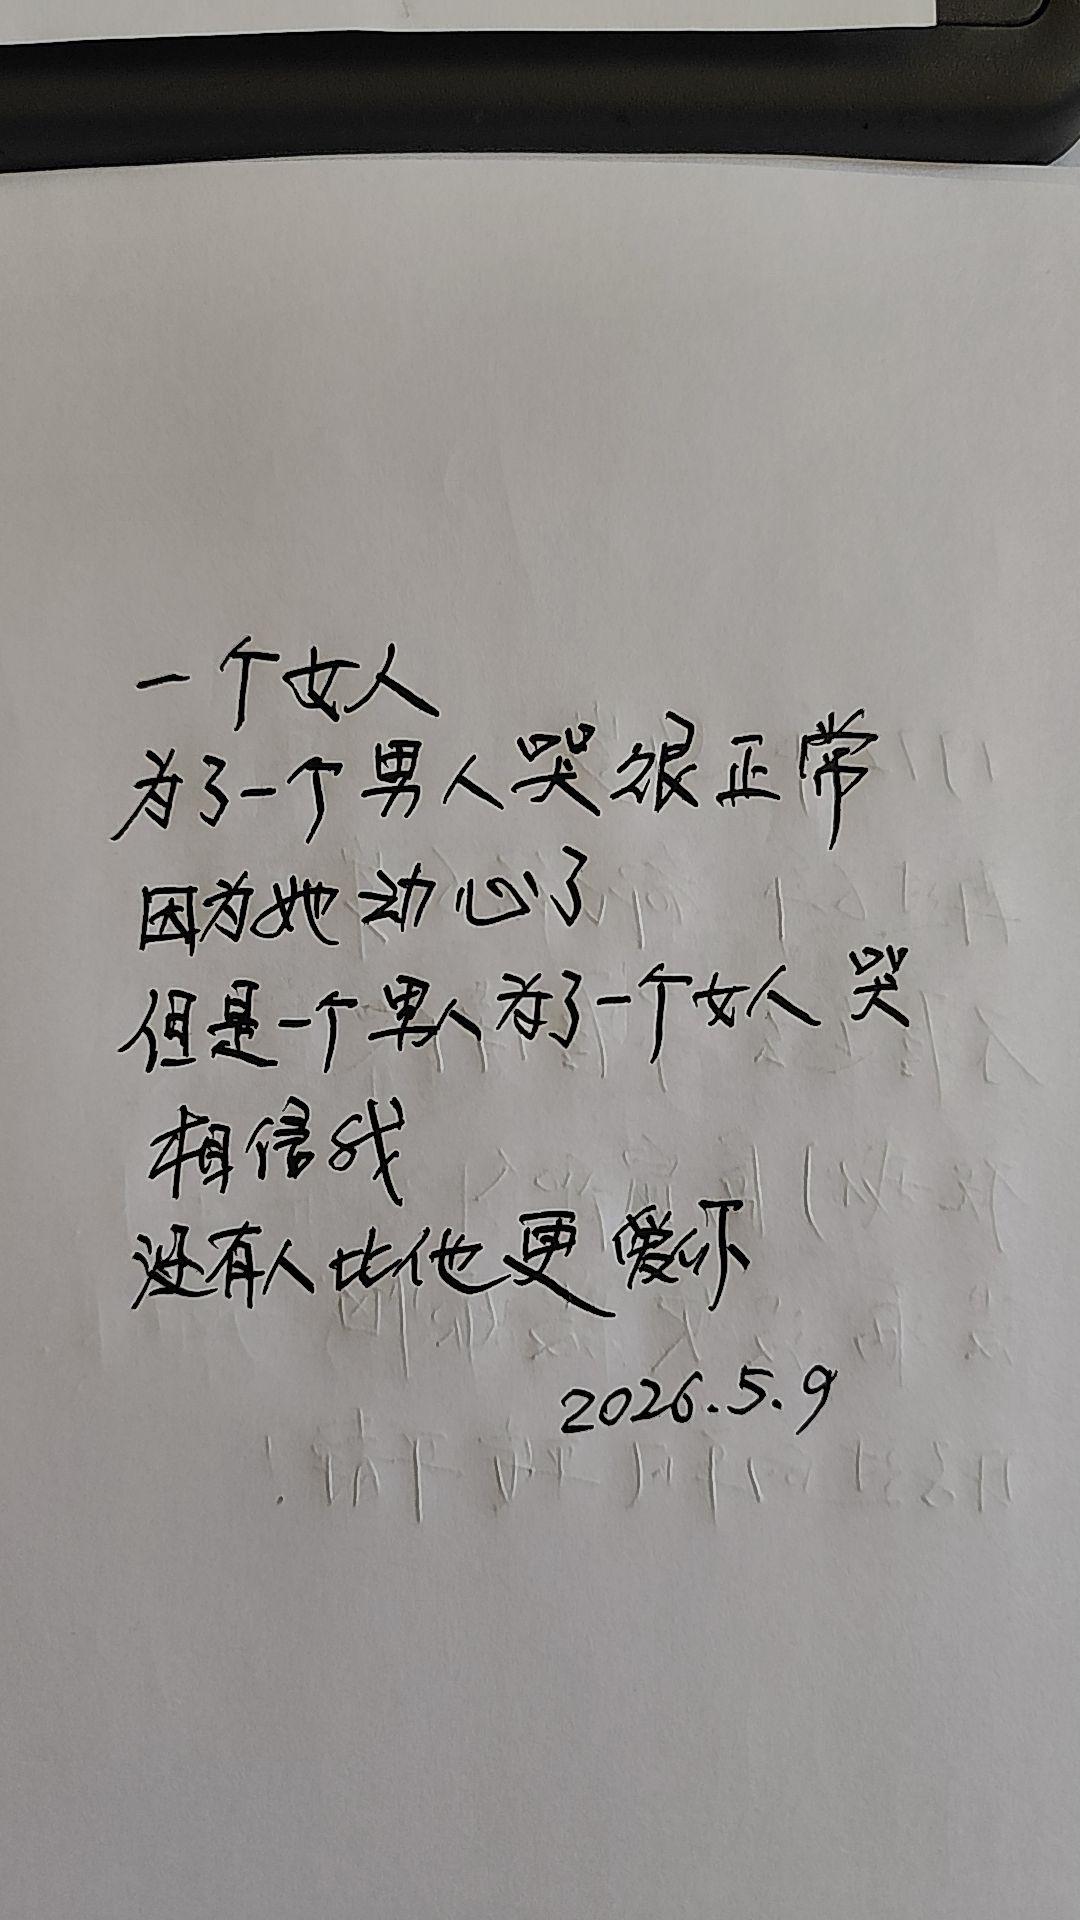 一个女人
为了一个男人哭很正常
因为她动心了
但是一个男人为了一个女人哭
相信我
没有人比他更爱你
2026.5.9